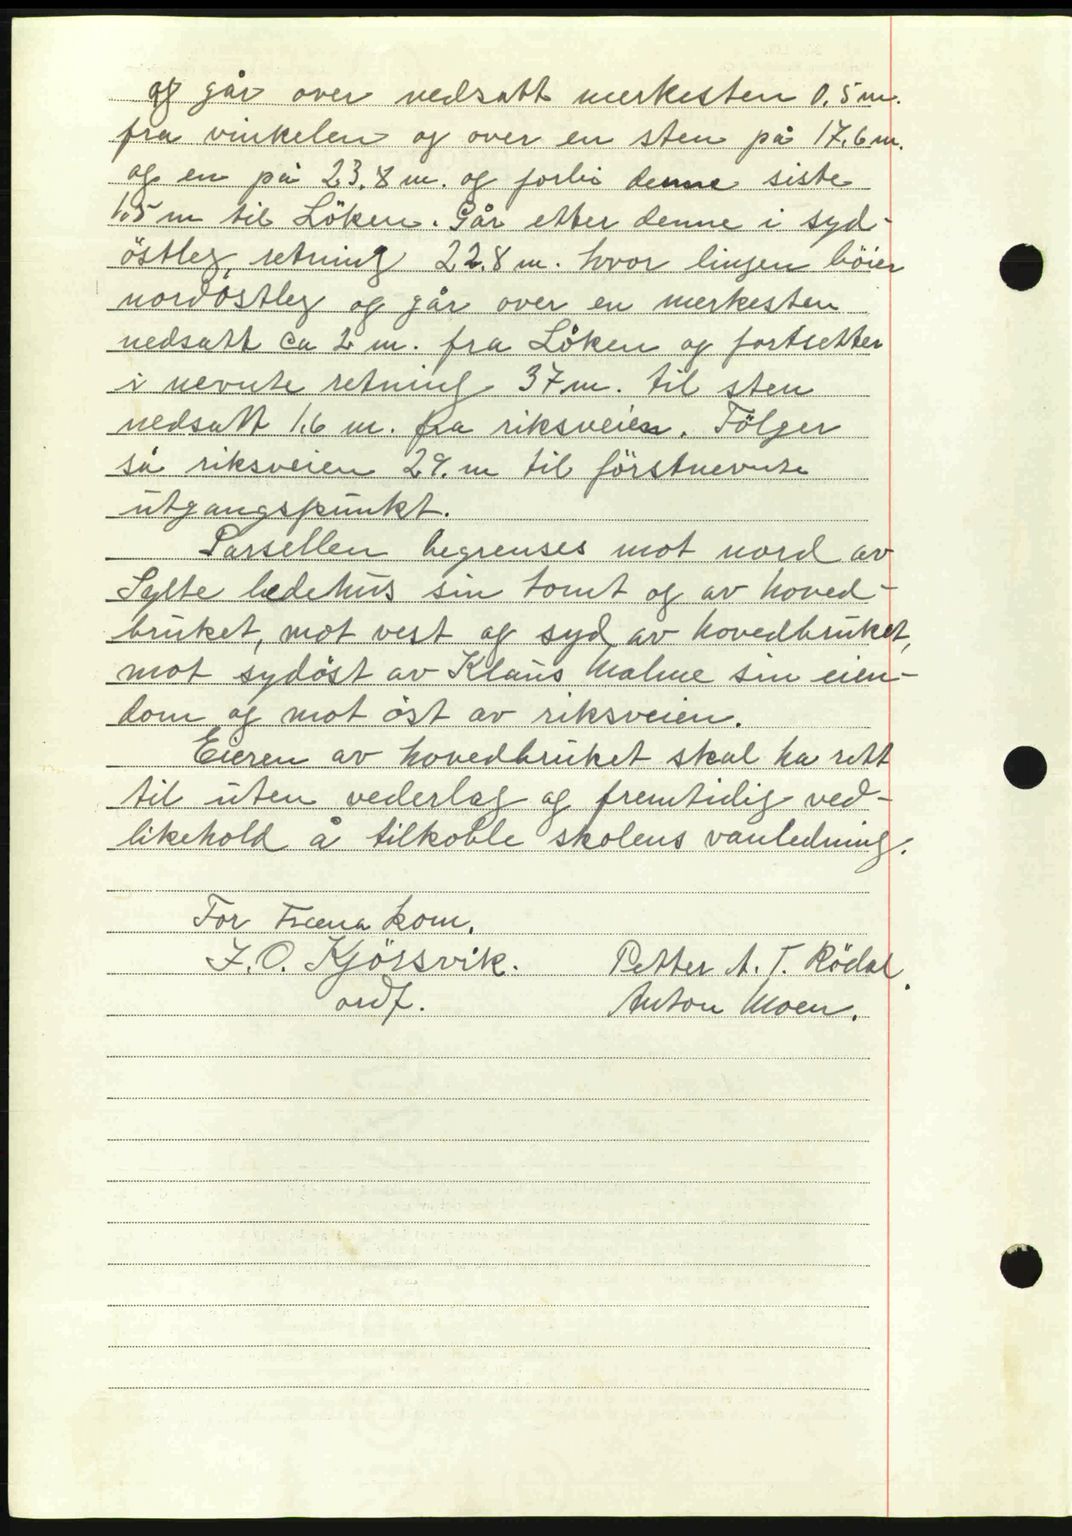 og går over nedsatt merkesten 0,5 m.
fra vinkelen og over en sten på 17,6 m.
og en på 23,8 m. og forbi denne siste
1,5 m til Löken. Går etter denne i syd-
östleg retning 22.8 m. hvor linjen böier
nordöstleg og går over en merkesten
nedsatt ca 2 m. fra Löken og fortsetter
i nevnte retning 37 m. til sten
nedsatt 1,6 m. fra riksveien. Fölger
så riksveien 29. m til förstnevnte
utgangspunkt.
Parsellen begrenses mot nord av
Sylte bedehus sin tomt og av hoved-
bruket, mot vest og syd av hovedbruket,
mot sydöst av Klaus Malme sin eien-
dom og mot öst av riksveien.
Eieren av hovedbruket skal ha rett
til uten vederlag og fremtidig ved-
likehold å tilkoble skolens vanledning.
For Fræna kom.
J. O. Kjörsvik.
Petter A. T. Rödal.
ordf.
Anton Moen.